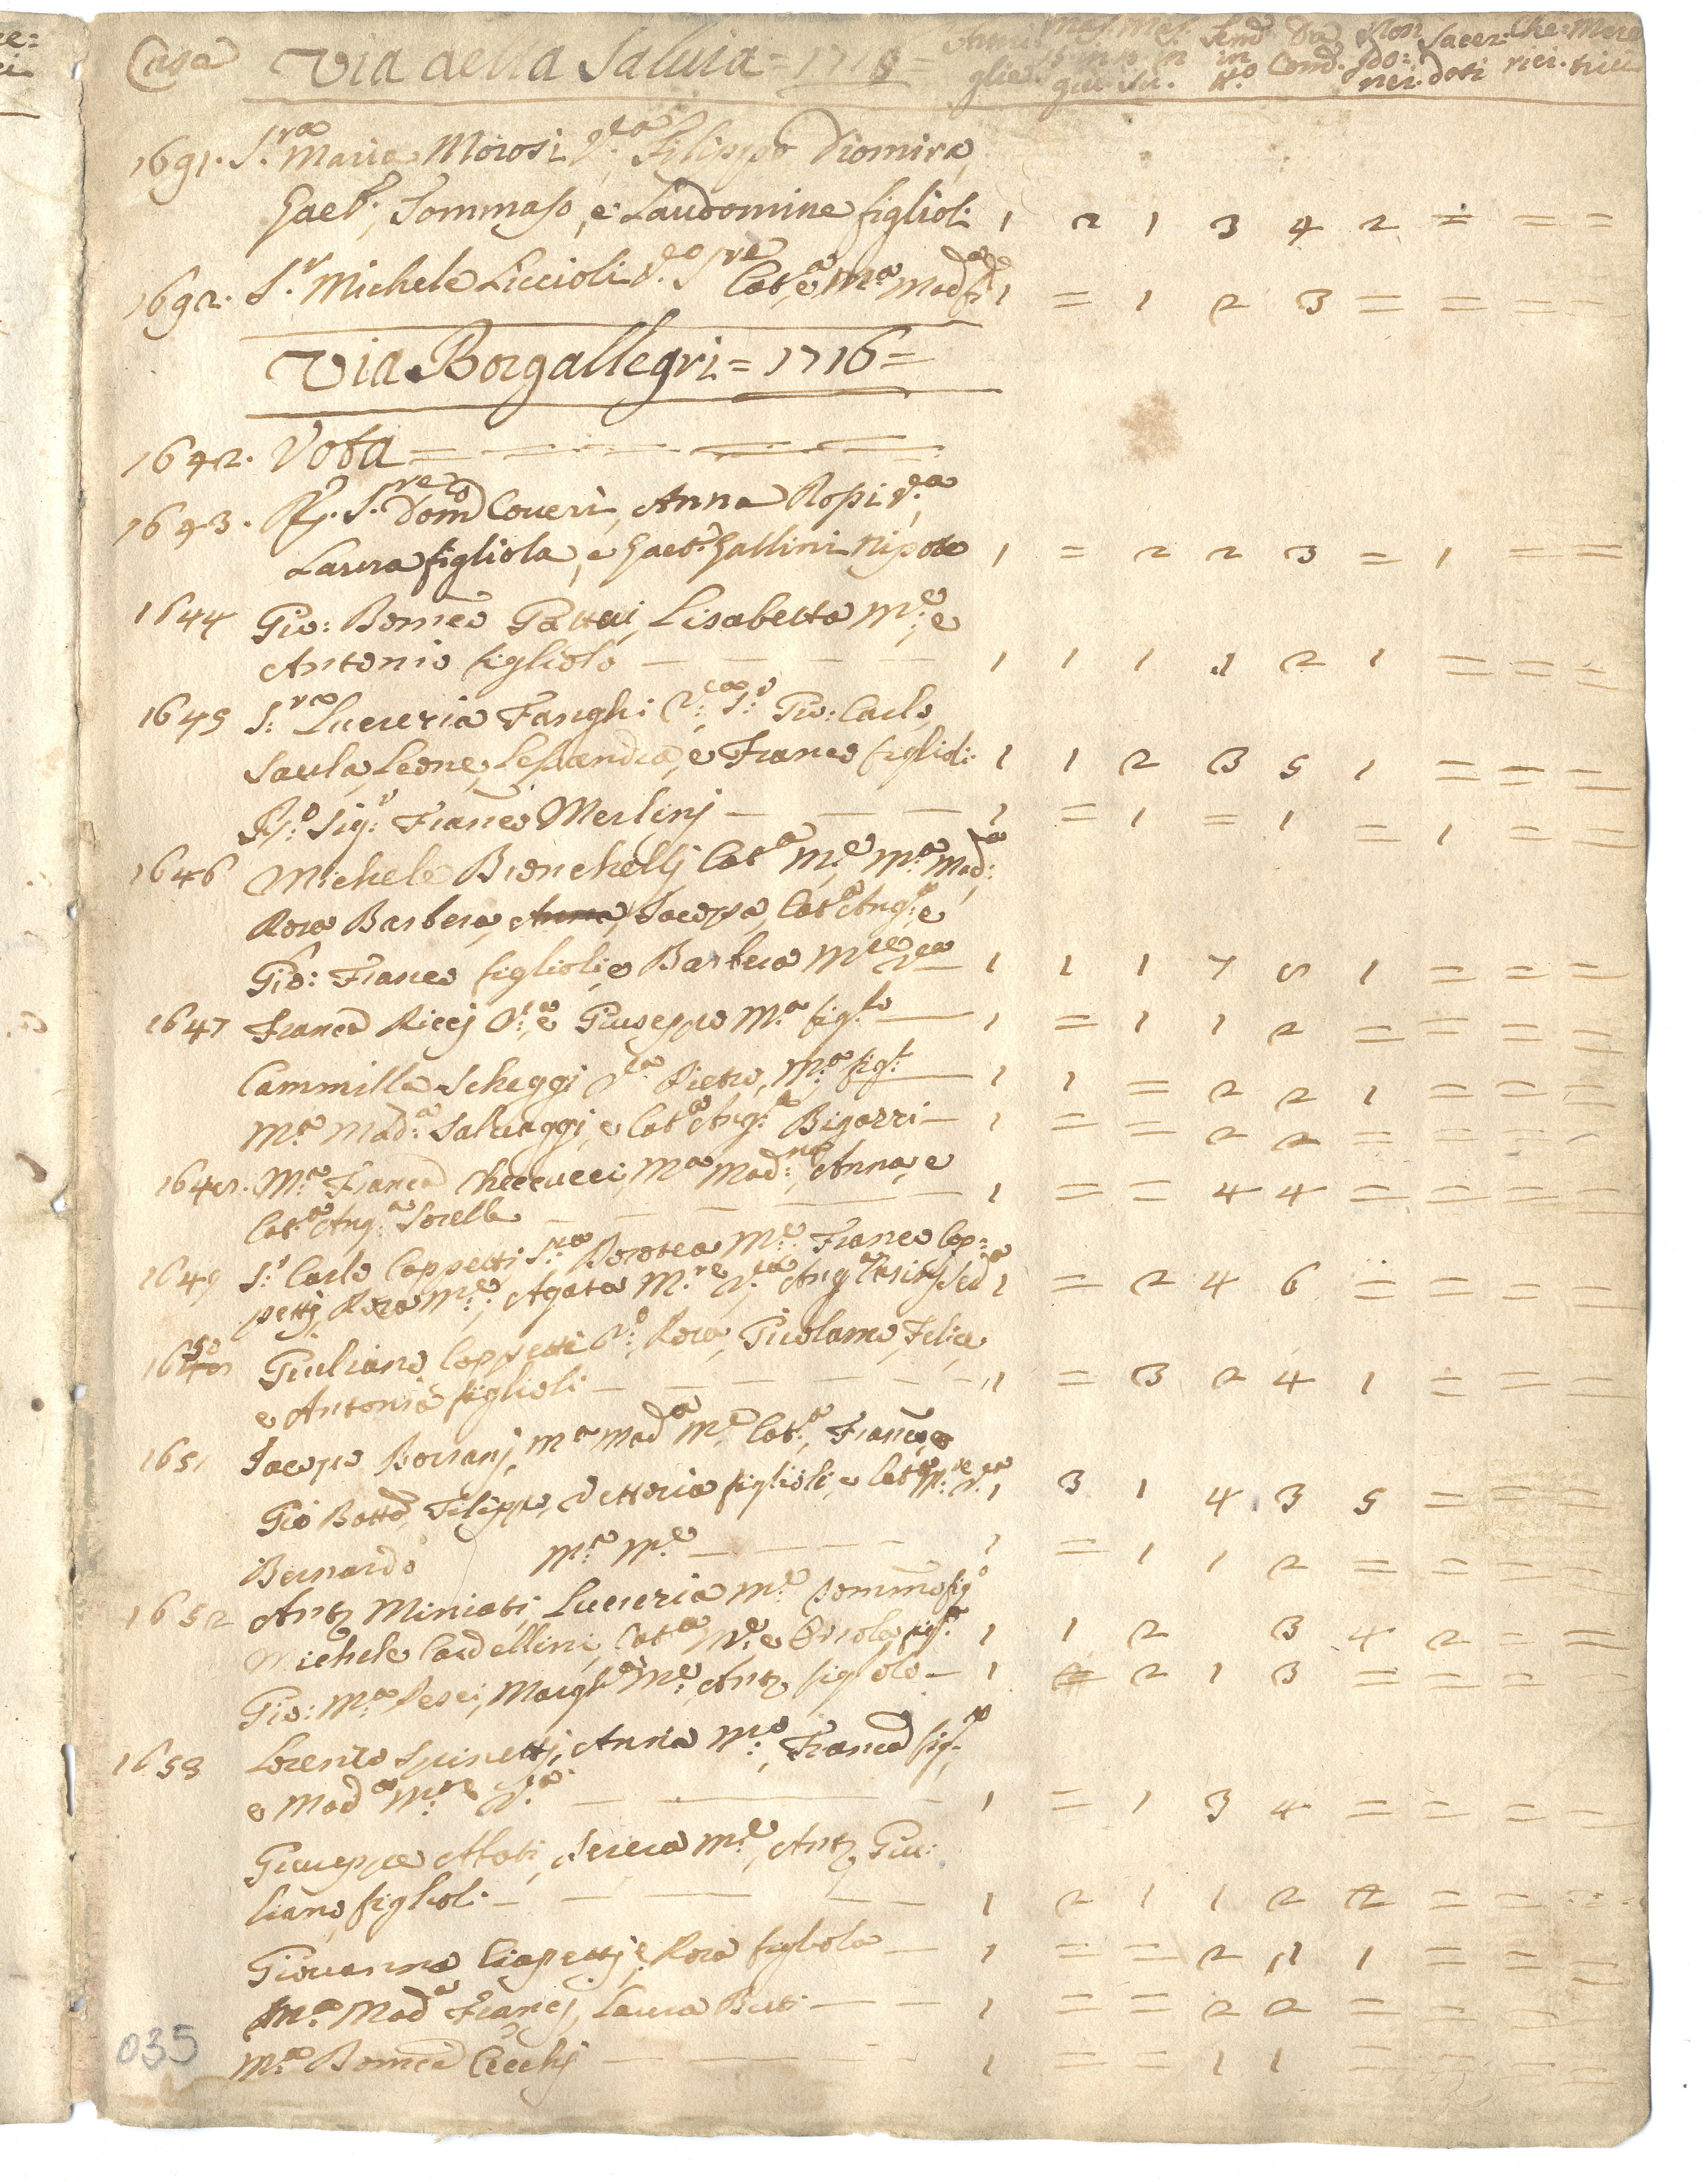 Casa Via della Salvia = 1716 =
glie gui su. Ho Com. nei. doti rici. trici
1691. S.ra Maria Morosi V.ea Filippo Diomira,
Gaet.o, Tommaso, e Laudomine figlioli 1 2 1 3 4 2 = = =
1692. S.r Michele Liccioli V.o S.re Cat.a, e M.a Mad.a 1 = 1 2 3 = = = =
Via Borgallegri = 1716 =
1642. Vota = = = = =
1643. R. S.re Dom.co Coveri, Anna Rossi V.a
Laura figliola, e Gaet.o Gallini Nipote 1 = 2 2 3 = 1 = =
1644 Gio: Domco Gattai, Lisabetta M.e, e
Antonio figliolo — — — — 1 1 1 1 2 1 = = =
1645 S.ra Lucrezia Fanghi V.ea S.r Gio: Carlo,
Saula, Leone, Lessandra, e Franco figlioli: 1 1 2 3 5 1 = = =
R.o Sig.r Franco Merlinj — — — 1 = 1 = 1 = 1 = =
1646 Michele Bronchellj Cat.a M.e M.a Mad.a
Rosa Barbera, Anna, Jacopa, Cat.a Ang.a e
Gio: Franco figlioli, e Barbera M.re V.ea 1 1 1 7 8 1 = = =
1647 Franca Riccj V.a, e Giuseppe M.a fig.lo — 1 = 1 1 2 = = = =
Cammilla Scheggi V.ea Pietro, M.a fig.li — 1 1 = 2 2 1 = = =
M.a Mad.a Salvaggi, e Cat.a Ang.a Bigazzi — 1 = = 2 2 = = = =
1648. M.a Franca Checcucci, M.a Mad.na, Anna, e
Cat.a Ang.a Sorelle — — — — 1 = = 4 4 = = = =
1649 S.r Carlo Coppetti S.ra Dorotea M.e Franco Cop:
pettj, Rosa M.e, Agata M.re V.ea Ang.a 1 = 2 4 6 = = = =
1650 Giuliano Coppetti V.o, Rosa, Girolamo, Felice,
e Antonia figlioli — — — — — 1 = 3 2 4 1 = = =
1651 Jacopo Borranj, M.a Mad.a M.e Cat.a, Franco, e
Gio Batta, Filippo, Vettoria figlioli, e Cat.a M.re V.ea 1 3 1 4 3 5 = = =
Bernardo M.a M.e — — — — 1 = 1 1 2 = = = =
1652 Anto Miniati, Lucrezia M.e Domenico fig.o
Michele Cardellini, Cat.a M.e e fig.a 1 1 2 3 4 2 = =
Gio: M.a Pesci, Margh.a M.e Anto figliolo — 1 = 2 1 3 = = = =
1653 Lorenzo Spinettj, Anna M.e, Franca fig.la
e Mad.a M.re V.a — — — 1 = 1 3 4 = = = =
Giuseppe , Teresa M.e, Anto, Giu:
liano figlioli — — — — 1 2 1 1 2 2 = = =
Giovanna Ciapettj, e Rosa figliola — 1 = = 2 1 1 = = =
M.a Mad.a Francj, Laura Berti — — 1 = = 2 2 = = = =
M.a Domca Cecchj — — — 1 = = 1 1 = = = =
035